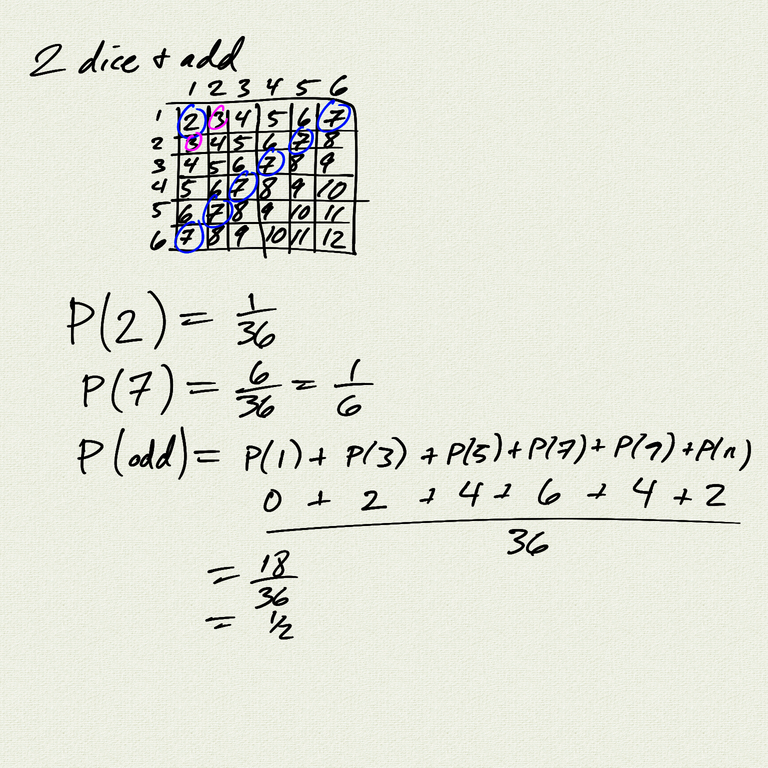 2 dice + add
1 2 3 4 5 6
1 2 3 4 5 6 7
2 3 4 5 6 7 8
3 4 5 6 7 8 9
4 5 6 7 8 9 10
5 6 7 8 9 10 11
6 7 8 9 10 11 12
P(2) = 1/36
P(7) = 6/36 = 1/6
P(odd) = P(1) + P(3) + P(5) + P(7) + P(9) + P(11)
0 + 2 + 4 + 6 + 4 + 2
36
= 18/36
= 1/2